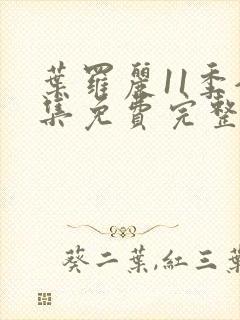 葉羅麗11季
集免費完整
葵二葉,紅三葉